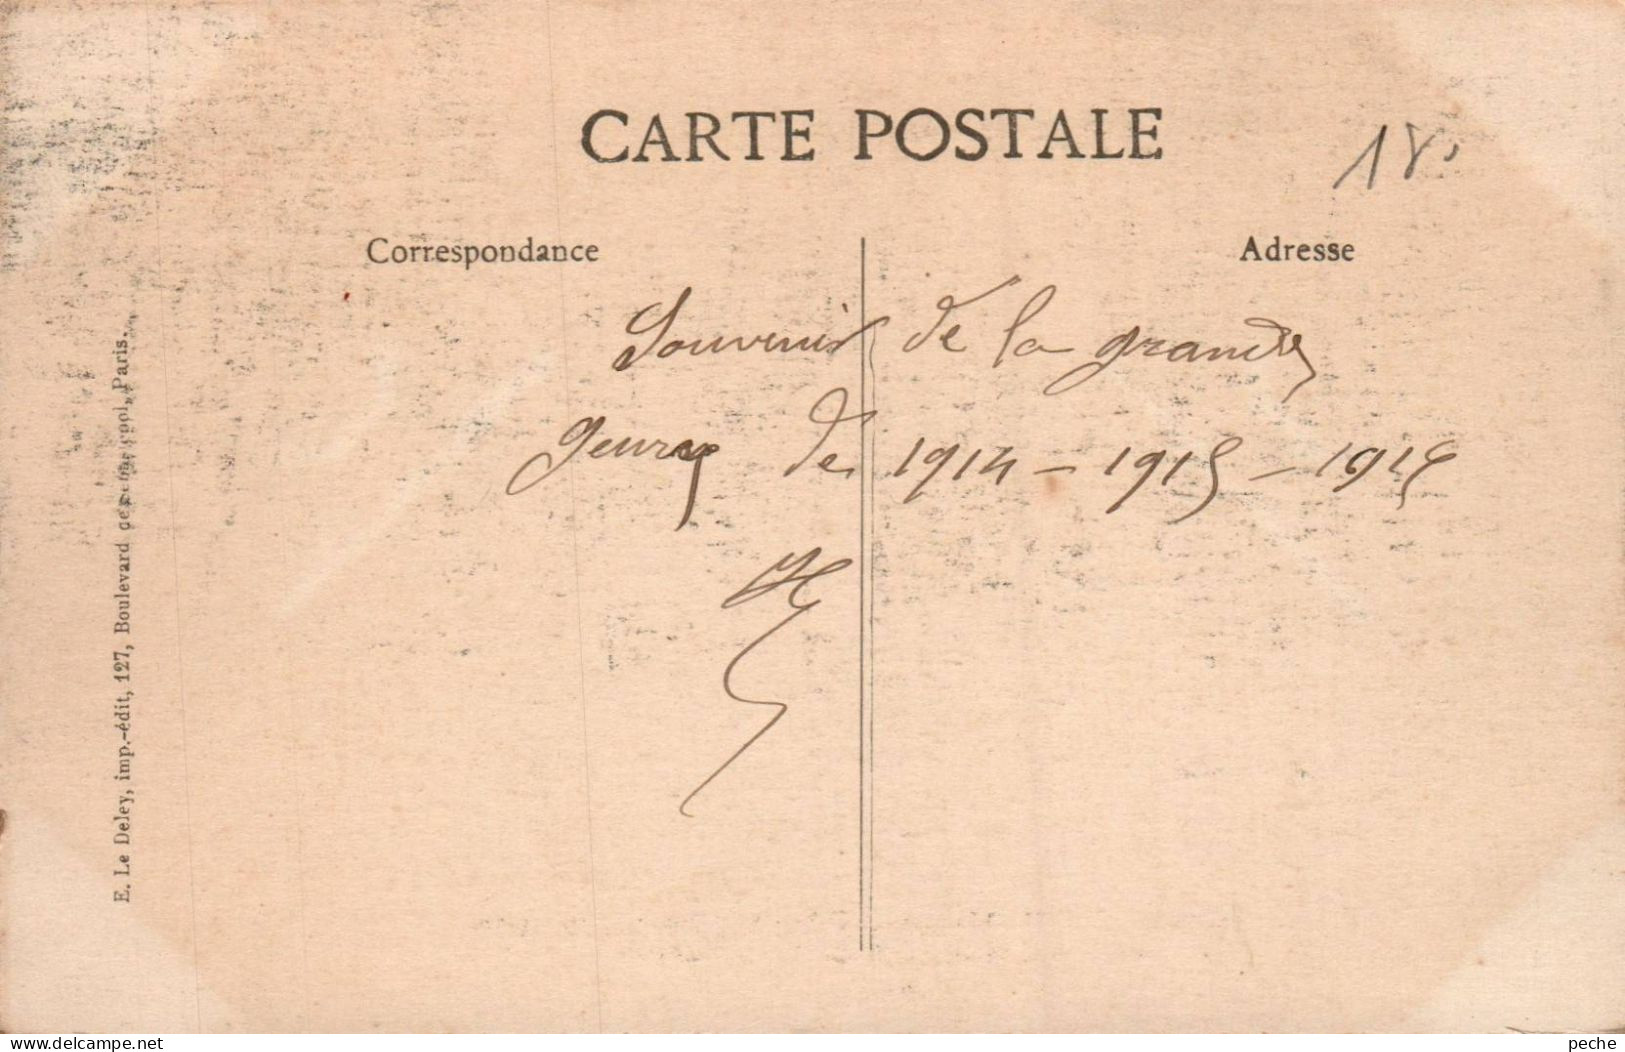 CARTE POSTALE
18
Correspondance
Adresse
Souvenir de la grande
geurre de 1914 - 1915 - 1916
E. Le Deley, imp.-édit, 127, Boulevard Paris.
www.delcampe.net
peche